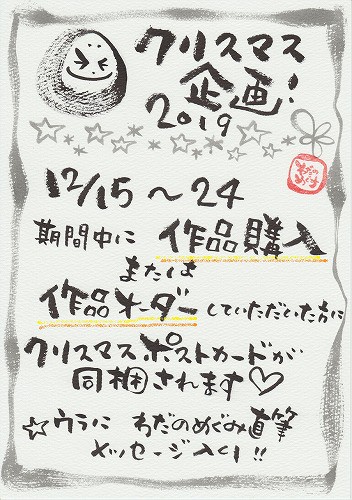 クリスマス
企画!
2019
12/15～24
期間中に 作品購入
または
作品オーダーしていただいた方に
クリスマスポストカードが
同梱されます♡
☆ウラに わだのめぐみ直筆
メッセージ入り!!